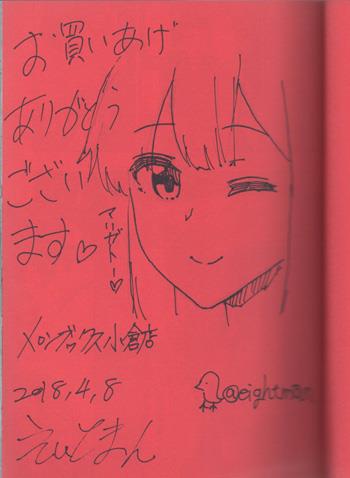 お買いあげ
ありがとう
ござい
ます♡
マ・ガトー♡
メロンブックス小倉店
2018,4,8
えいとまん
@eightman